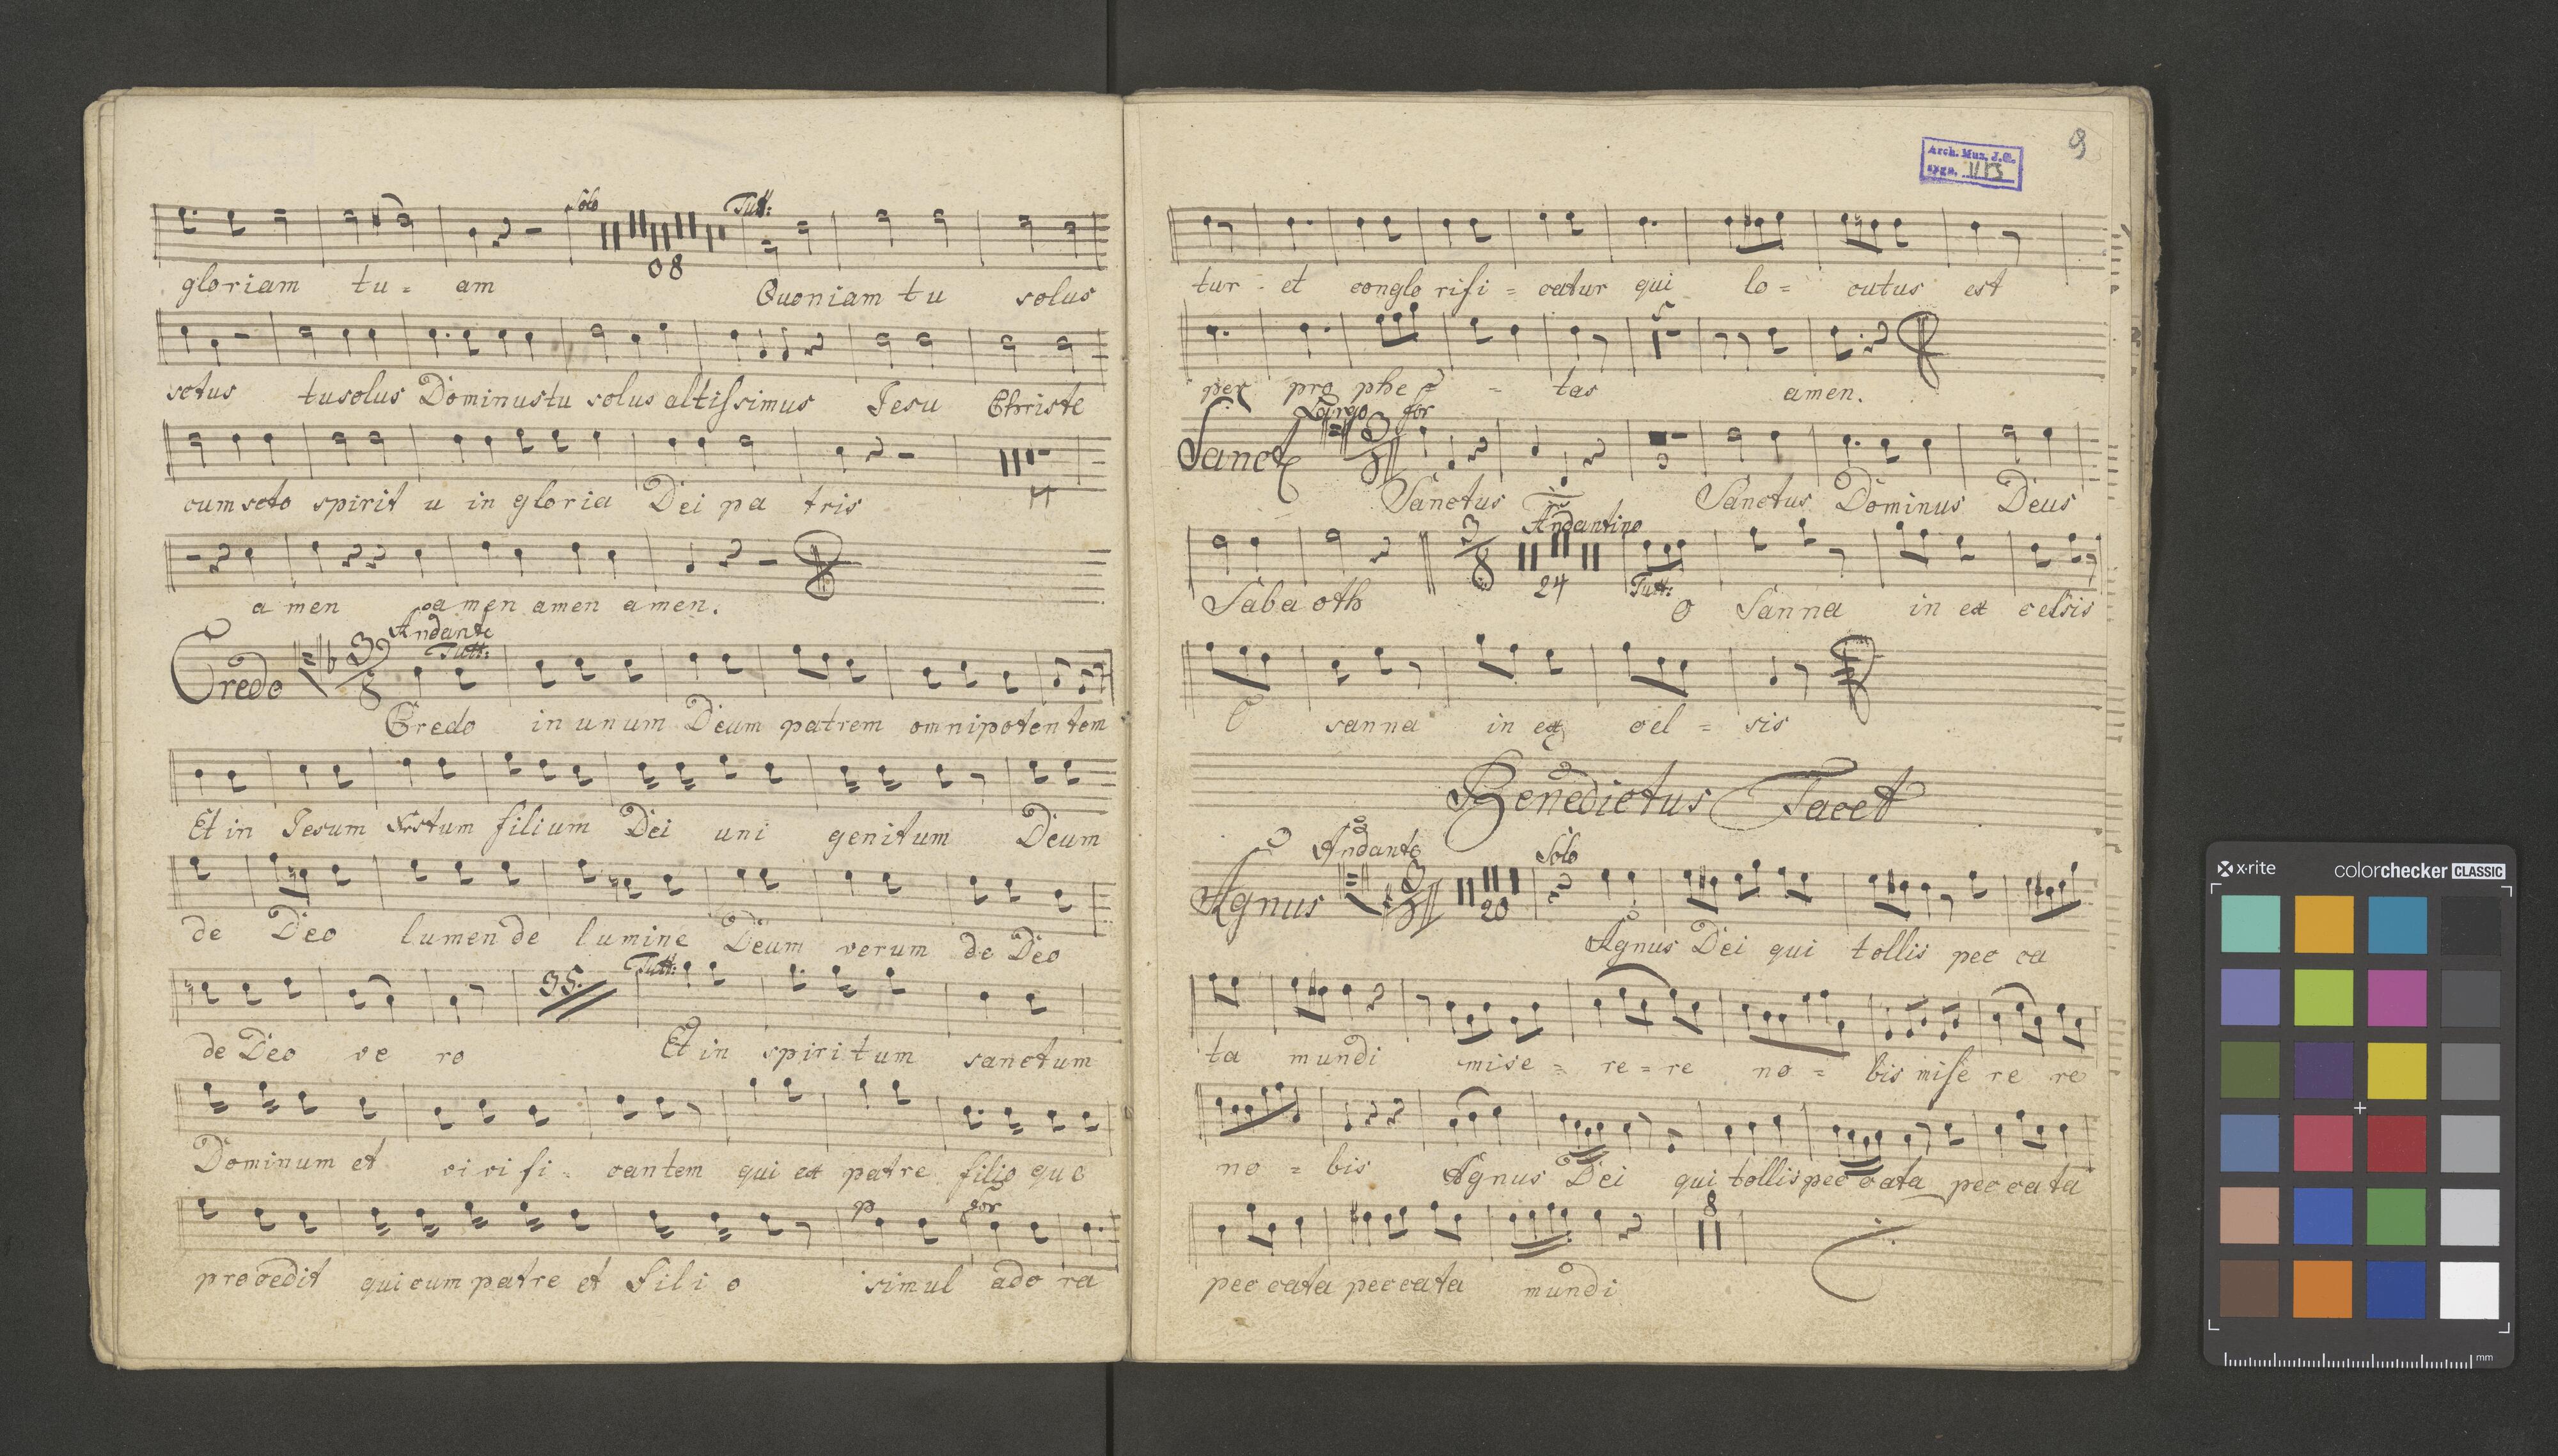 Solo Tutt:
08
gloriam tu = am Quoniam tu solus
sctus tu solus Dominus tu solus altissimus Jesu Christe
cum scto spirit u in gloria Dei pa tris
a men amen amen amen.
Andante
Tutt:
Credo 3/8
Credo in unum Deum patrem omnipotentem
Et in Jesum Xrstum filium Dei uni genitum Deum
de Deo lumen de lumine Deum verum de Deo
35. Tutt:
de Deo ve ro Et in spiritum sanctum
Dominum et vi vi fi = cantem qui ex patre filio que
p for
procedit qui cum patre et Filio simul ado ra
9
Arch. Muz. J.G.
sygn.
tur = et conglo rifi = catur qui lo = cutus est
5
per pro phe = = tas amen.
Largo for
Sanct
Sanctus Sanctus Dominus Deus
Andantino
3/8 24 Tutt:
Saba oth O Sanna in ex celsis
O sanna in ex cel = sis
Benedictus Tacet
Andante Solo
Agnus 20
Agnus Dei qui tollis pec ca
ta mundi mise = re = re no = bis mise re re
no = bis Agnus Dei qui tollis pec cata pec cata
8
pec cata peccata mundi
x-rite colorchecker CLASSIC
mm